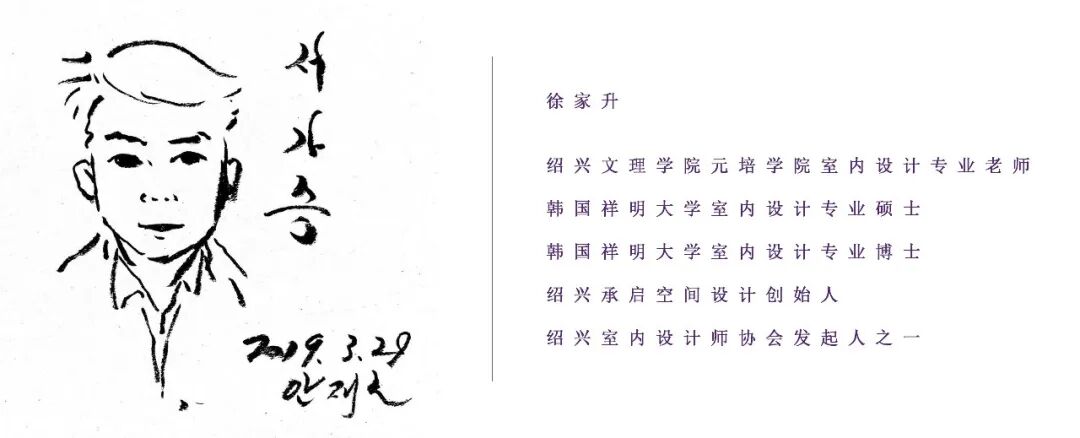 서
가
승
2019. 3. 29
徐家升
绍兴文理学院元培学院室内设计专业老师
韩国祥明大学室内设计专业硕士
韩国祥明大学室内设计专业博士
绍兴承启空间设计创始人
绍兴室内设计师协会发起人之一